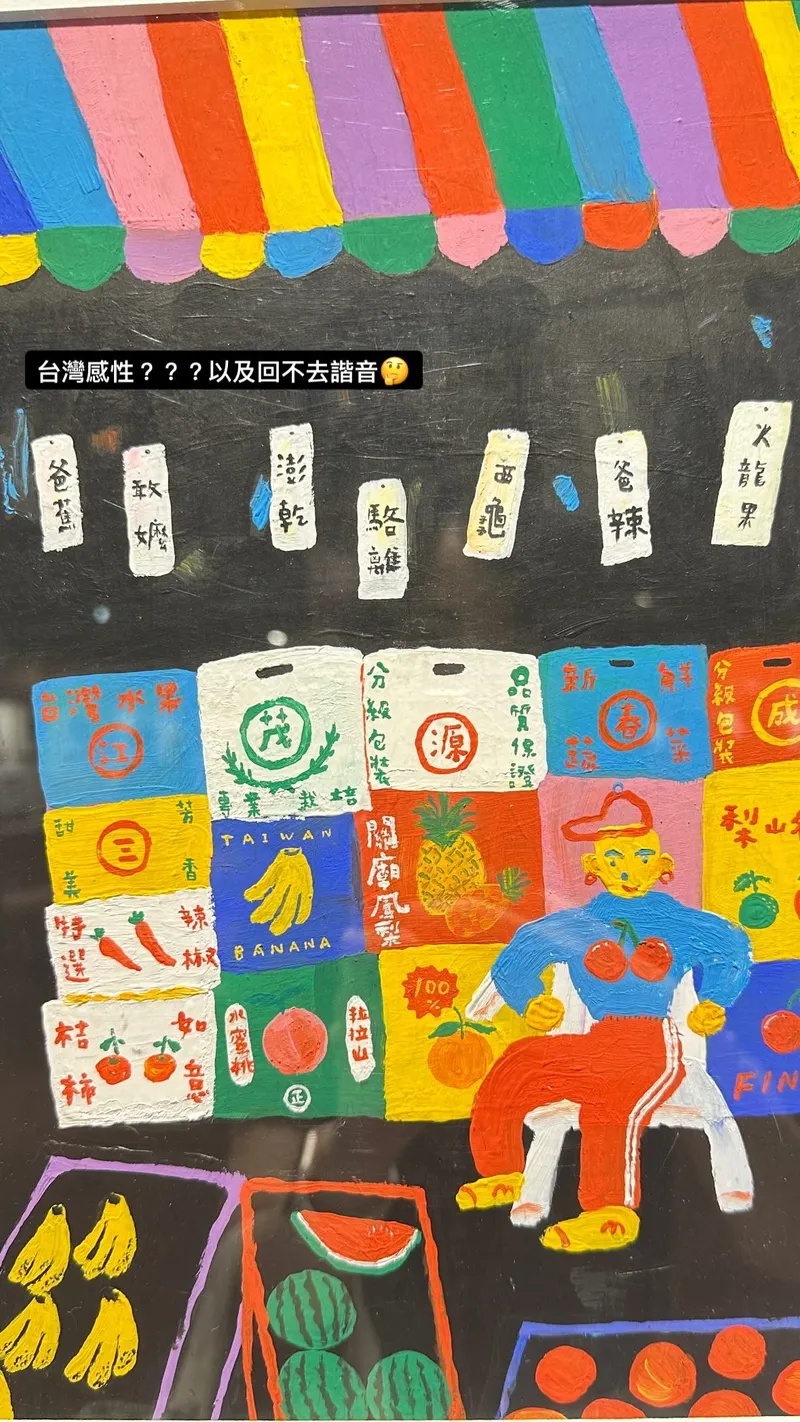 台灣感性？？？以及回不去諧音🤔
爸蕉
敢嬤
澎乾
駱離
西龜
爸辣
火龍果
台灣水果
江
茂
專業栽培
分級包裝
源
品質保證
新鮮
春
蔬菜
分級包裝
成
甜美
三
芳香
TAIWAN
BANANA
關廟鳳梨
梨山
特選
辣椒
桔柿
如意
水蜜桃
拉拉山
正
100%
FIN